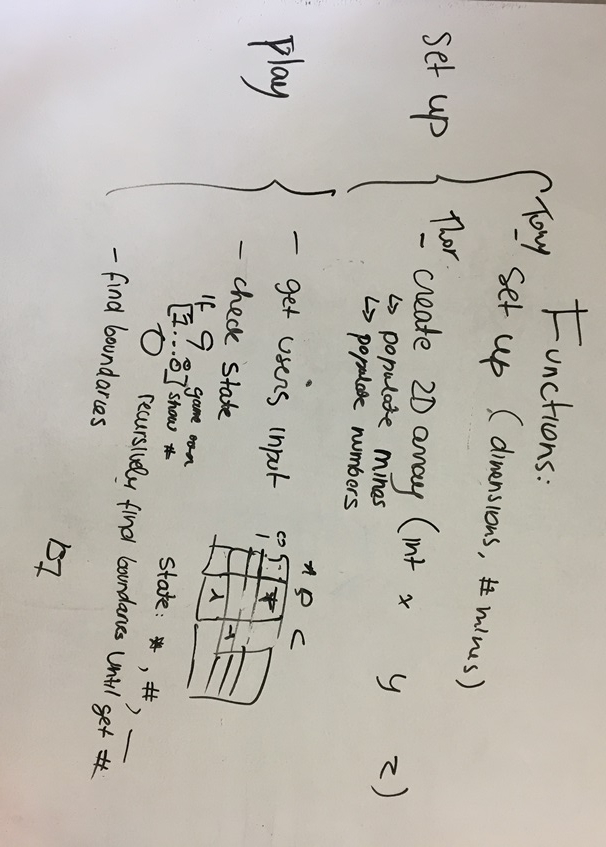 Functions:
Set up
Tony
Set up (dimensions, # mines)
Thor
- create 2D array (int x y z)
↳ populate mines
↳ populate numbers
Play
- get users input
- check state
If 9 game over
[1...8] show #
0 recursively find boundaries until get #
- find boundaries
A B C
1
*
1
1
State: *, #, _